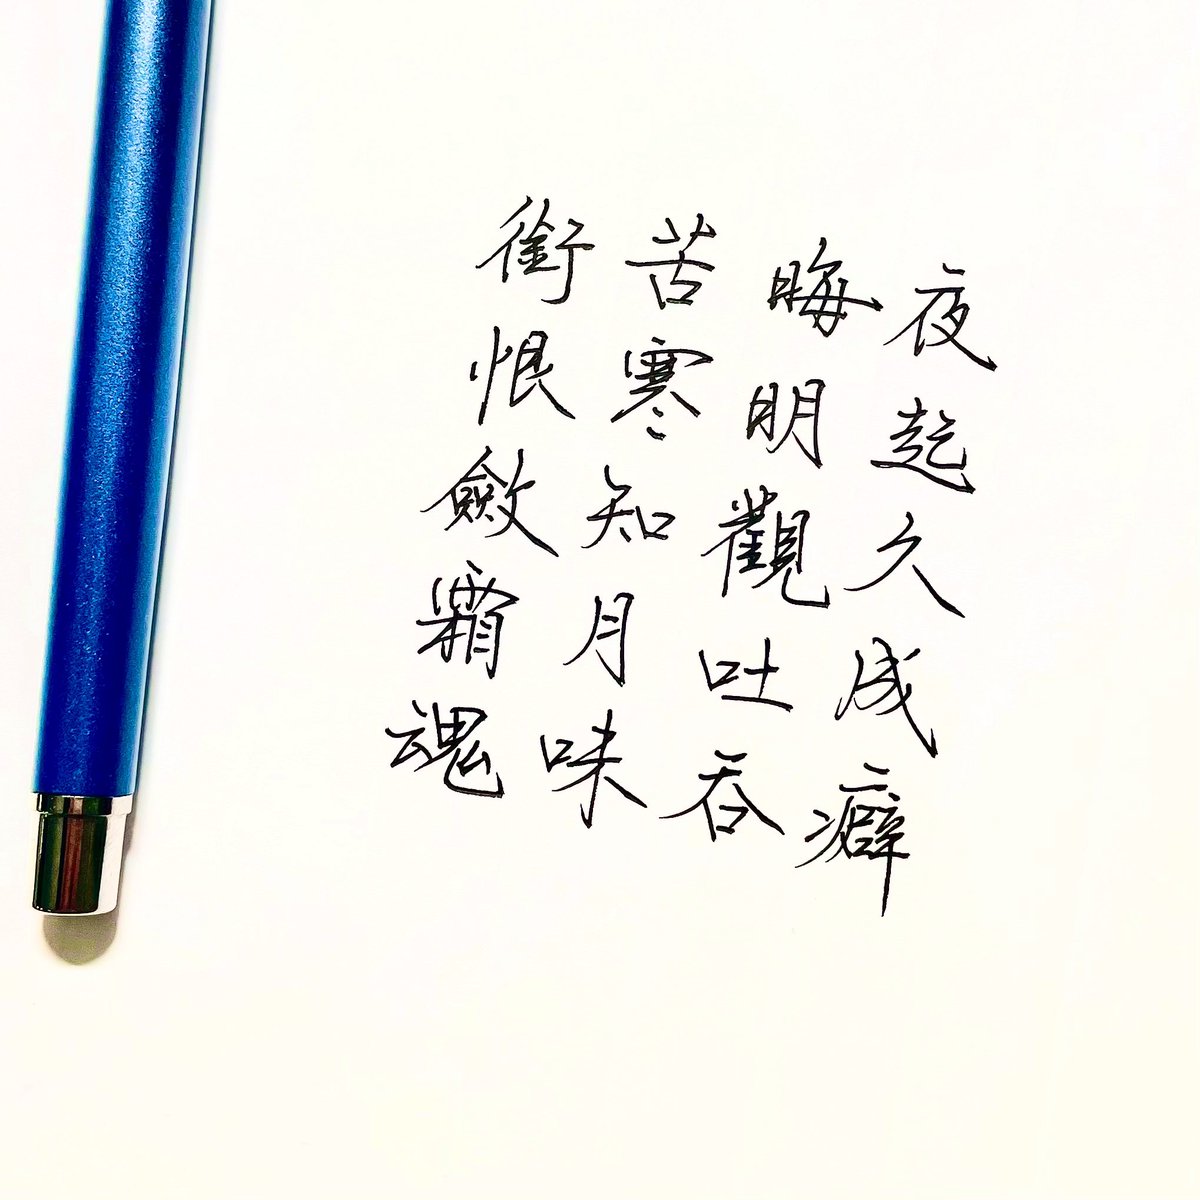 夜起久成癖
晦明觀吐吞
苦寒知月味
銜恨斂霜魂